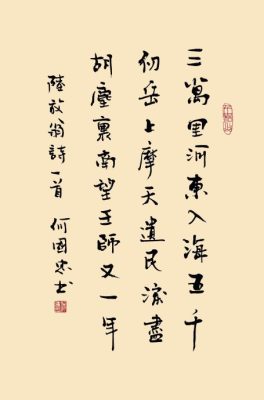 三萬里河東入海五千
仞岳上摩天遺民淚盡
胡塵裏南望王師又一年
陸放翁詩一首 何國忠书